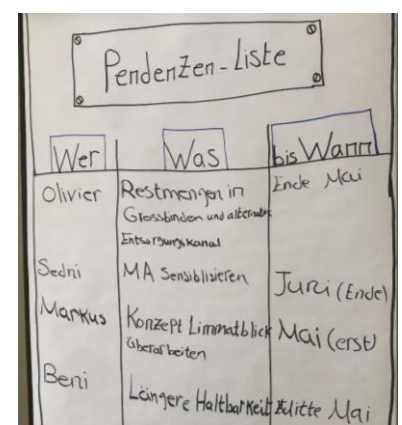 Pendenzen-Liste
Wer Was bis Wann
Olivier Restmengen in Ende Mai
Grossbinden und alternativ
Entsorgungskanal
Sedni MA Sensiblisieren Juni (Ende)
Markus Konzept Limmatblick Mai (erst)
überarbeiten
Beni Längere Haltbarkeit Mitte Mai